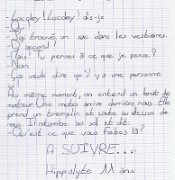 - Locplay! Locplay! dis-je
- Oui?
- J'ai trouvé un sac dans les vestiaires.
- D'accord!
- Mais! Tu penses à ce que je pense?
- Non.
- Ça veut dire qu'il y a une personne
Au même moment, on entend un bruit de
moteur. Une moto arrive derrière nous. Elle
prend un tremplin et saute au dessus de
nous. Il retombe au sol et dit:
- Qu'est ce que vous faites là?
A SUIVRE....
Hippolyte 11 ans